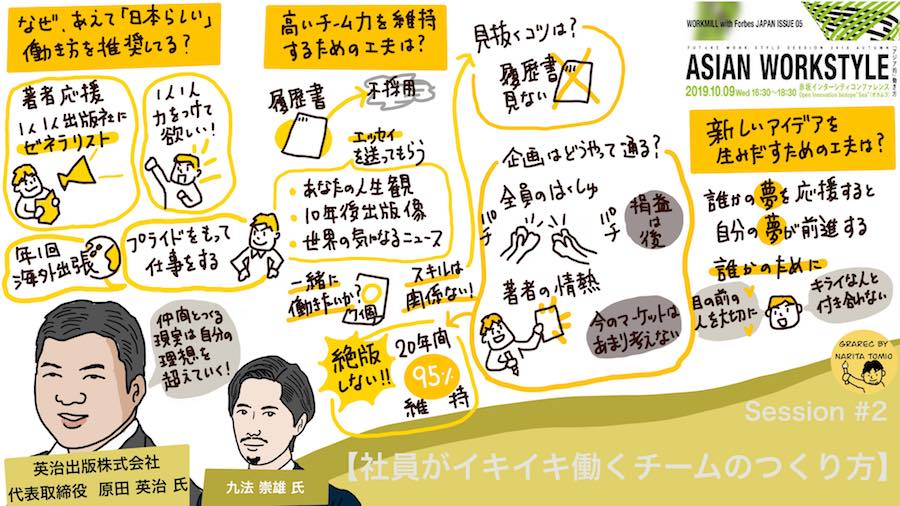 なぜ、あえて「日本らしい」
働き方を推奨してる?
著者応援
1人1人出版社に
ゼネラリスト
1人1人
力をつけて
欲しい!
年1回
海外出張
プライドをもって
仕事をする
仲間とつくる
現実は自分の
理想を
超えていく!
英治出版株式会社
代表取締役 原田 英治 氏
九法 崇雄 氏
高いチーム力を維持
するための工夫は?
履歴書
不採用
エッセイ
を送ってもらう
・あなたの人生観
・10年後出版像
・世界の気になるニュース
一緒に
働きたいか?
スキルは
関係ない!
絶版
しない!!
20年間
95%
維持
見抜くコツは?
履歴書
見ない
企画はどうやって通る?
全員のはくしゅ
パチ
パチ
損益
は
後
著者の情熱
今のマーケットは
あまり考えない
WORKMILL with Forbes JAPAN ISSUE 05
FUTURE WORK STYLE SESSION 2019 AUTUMN
ASIAN WORKSTYLE
「アジア的」働き方
2019.10.09 Wed 16:30~18:30
赤坂インターシティコンファレンス
Open Innovation Biotope "Sea"
新しいアイデアを
生みだすための工夫は?
誰かの夢を応援すると
自分の夢が前進する
誰かのために
目の前の
人を大切に
キライな人と
付き合わない
GRAREC BY
NARITA TOMIO
Session #2
【社員がイキイキ働くチームのつくり方】